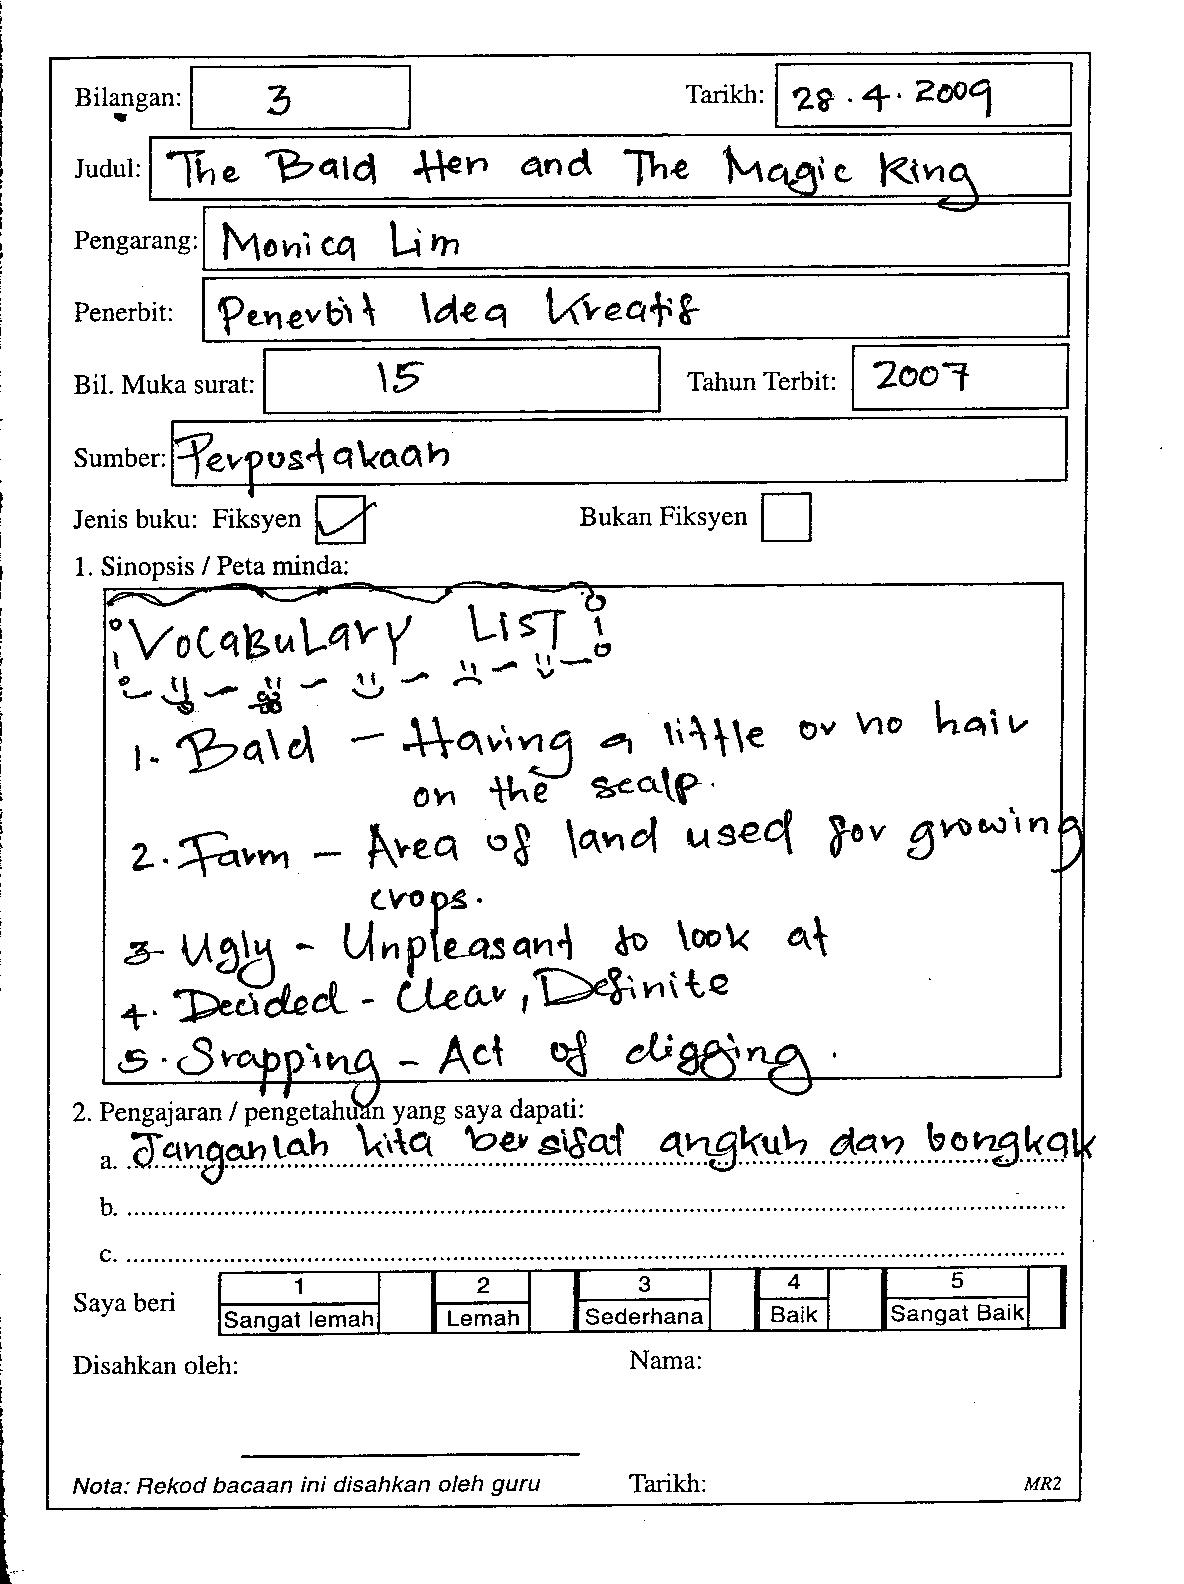 Bilangan: 3 Tarikh: 28.4.2009
Judul: The Bald Hen and The Magic Ring
Pengarang: Monica Lim
Penerbit: Penerbit Idea Kreatif
Bil. Muka surat: 15 Tahun Terbit: 2007
Sumber: Perpustakaan
Jenis buku: Fiksyen Bukan Fiksyen
1. Sinopsis / Peta minda:
VOCABULARY LIST
1. Bald - Having a little or no hair
on the scalp.
2. Farm - Area of land used for growing
crops.
3 Ugly - Unpleasant to look at
4. Decided - Clear, Definite
5. Srapping - Act of digging.
2. Pengajaran / pengetahuan yang saya dapati:
a. Janganlah kita bersifat angkuh dan bongkak
b.
c.
Saya beri 1 2 3 4 5
Sangat lemah Lemah Sederhana Baik Sangat Baik
Disahkan oleh: Nama:
Nota: Rekod bacaan ini disahkan oleh guru Tarikh: MR2